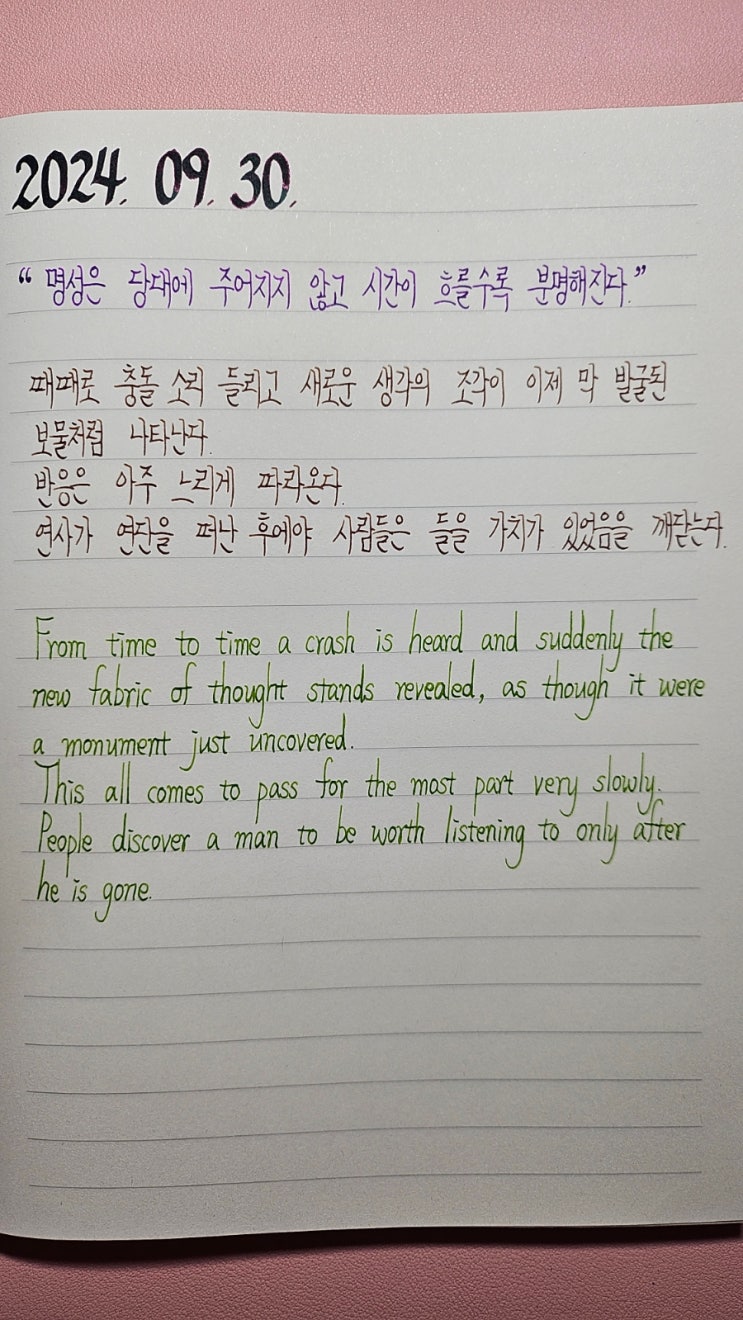 2024. 09. 30.
“명성은 당대에 주어지지 않고 시간이 흐를수록 분명해진다.”
때때로 충돌 소리 들리고 새로운 생각의 조각이 이제 막 발굴된
보물처럼 나타난다.
반응은 아주 느리게 따라온다.
연사가 연단을 떠난 후에야 사람들은 들을 가치가 있었음을 깨닫는다.
From time to time a crash is heard and suddenly the
new fabric of thought stands revealed, as though it were
a monument just uncovered.
This all comes to pass for the most part very slowly.
People discover a man to be worth listening to only after
he is gone.